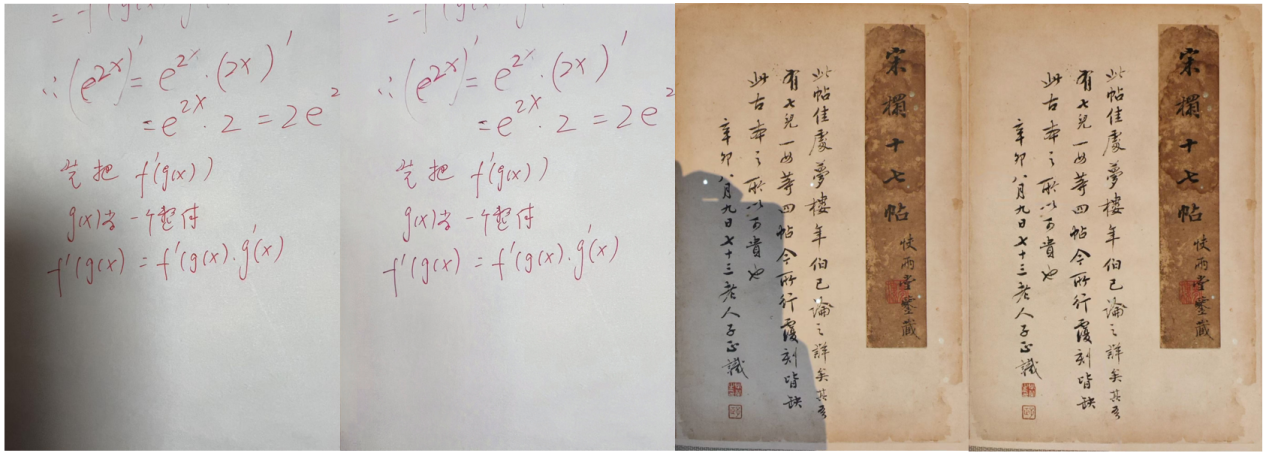 ∴(e²ˣ)' = e²ˣ·(2x)'
= e²ˣ·2 = 2e²
把 f'(g(x))
g(x)当一个整体
f'(g(x) = f'(g(x)·g'(x)
∴(e²ˣ)' = e²ˣ·(2x)'
= e²ˣ·2 = 2e
把 f'(g(x))
g(x)当一个整体
f'(g(x) = f'(g(x)·g'(x)
宋搨十七帖
快雨堂鑒藏
此帖佳處夢樓年伯已論之詳矣
有七兒一女等四帖今所行覆刻皆缺
此古本之所以可貴也
辛卯八月九日七十三老人子正識
宋搨十七帖
快雨堂鑒藏
此帖佳處夢樓年伯已論之詳矣
有七兒一女等四帖今所行覆刻皆缺
此古本之所以可貴也
辛卯八月九日七十三老人子正識